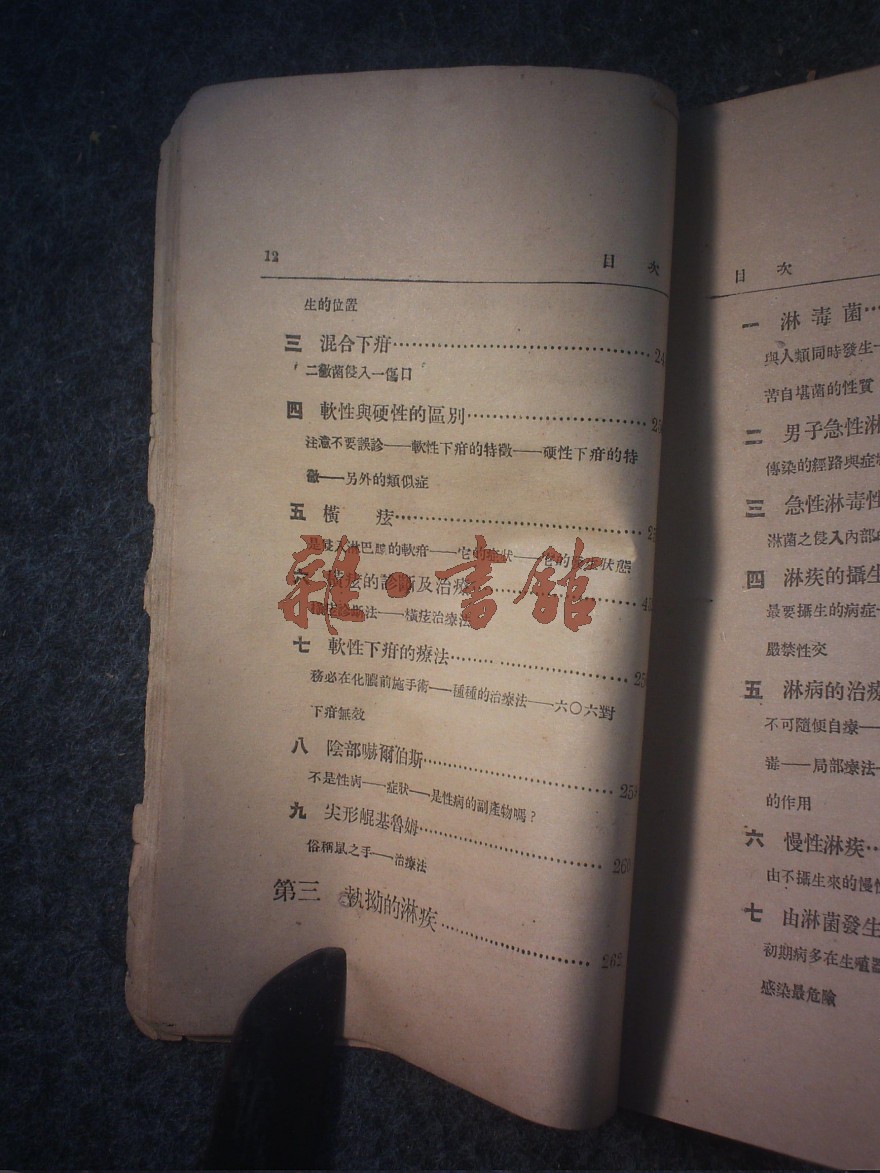 12 目 次
生的位置
三 混合下疳………………24
二黴菌侵入一傷口
四 軟性與硬性的區別………………25
注意不要誤診——軟性下疳的特徵——硬性下疳的特
徵——另外的類似症
五 橫 痃………………2
是侵入淋巴腺的軟疳——它的症狀——它的 狀態
六 橫痃的診斷及治療………………
診斷法——橫痃治療法
七 軟性下疳的療法………………25
務必在化膿前施手術——種種的治療法——六〇六對
下疳無效
八 陰部嚇爾伯斯………………25
不是性病——症狀——是性病的副產物嗎?
九 尖形崐基魯姆………………260
俗稱鼠之手——治療法
第三 執拗的淋疾………………262
雜·書館
目 次
一 淋毒菌…
與人類同時發生—
苦自堪菌的性質
二 男子急性淋
傳染的經路與症
三 急性淋毒性
淋菌之侵入內部
四 淋疾的攝生
最要攝生的病症—
嚴禁性交
五 淋病的治療
不可隨便自療——
毒——局部療法—
的作用
六 慢性淋疾…
由不攝生來的慢性
七 由淋菌發生
初期病多在生殖器
感染最危險